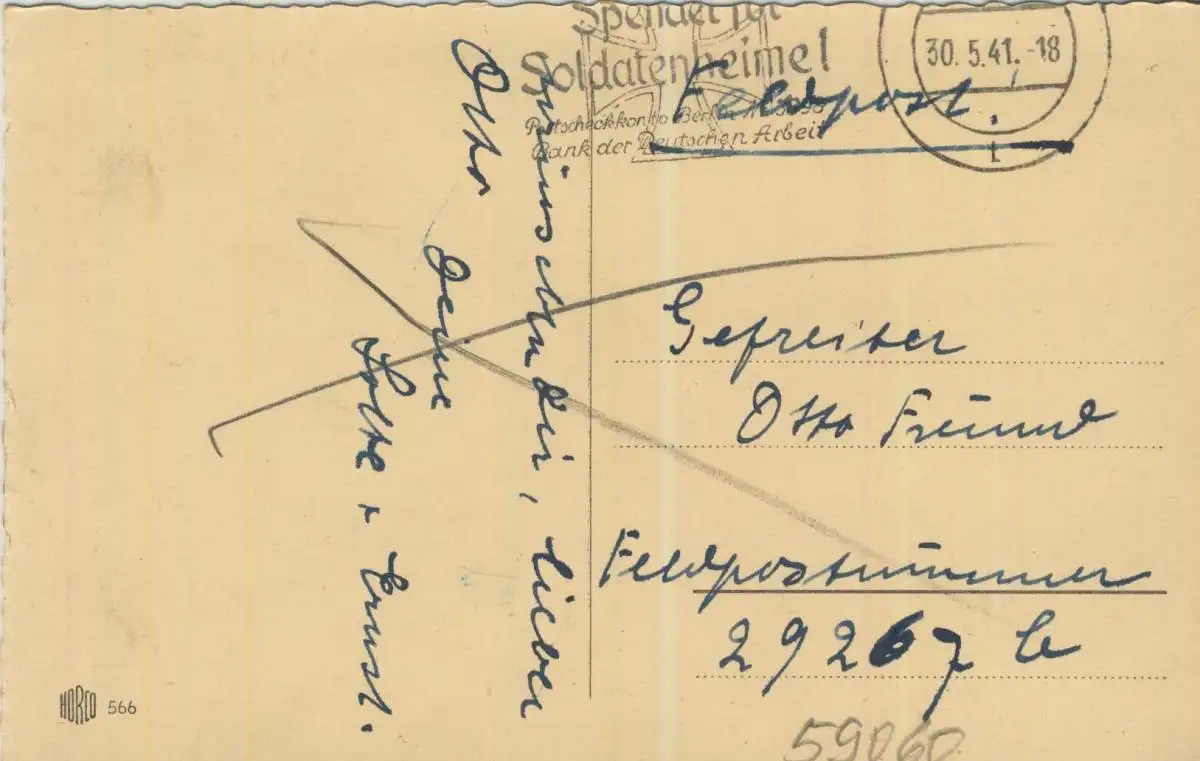 Spendet für
Soldatenheime!
Postscheckkonto Berlin
Bank der Deutschen Arbeit
30.5.41.-18
Feldpost.
wünschen Dir, lieber
Otto
Deine
Lotte + Ernst.
Gefreiter
Otto Freund
Feldpostnummer
29267 C
59060
HORCO 566